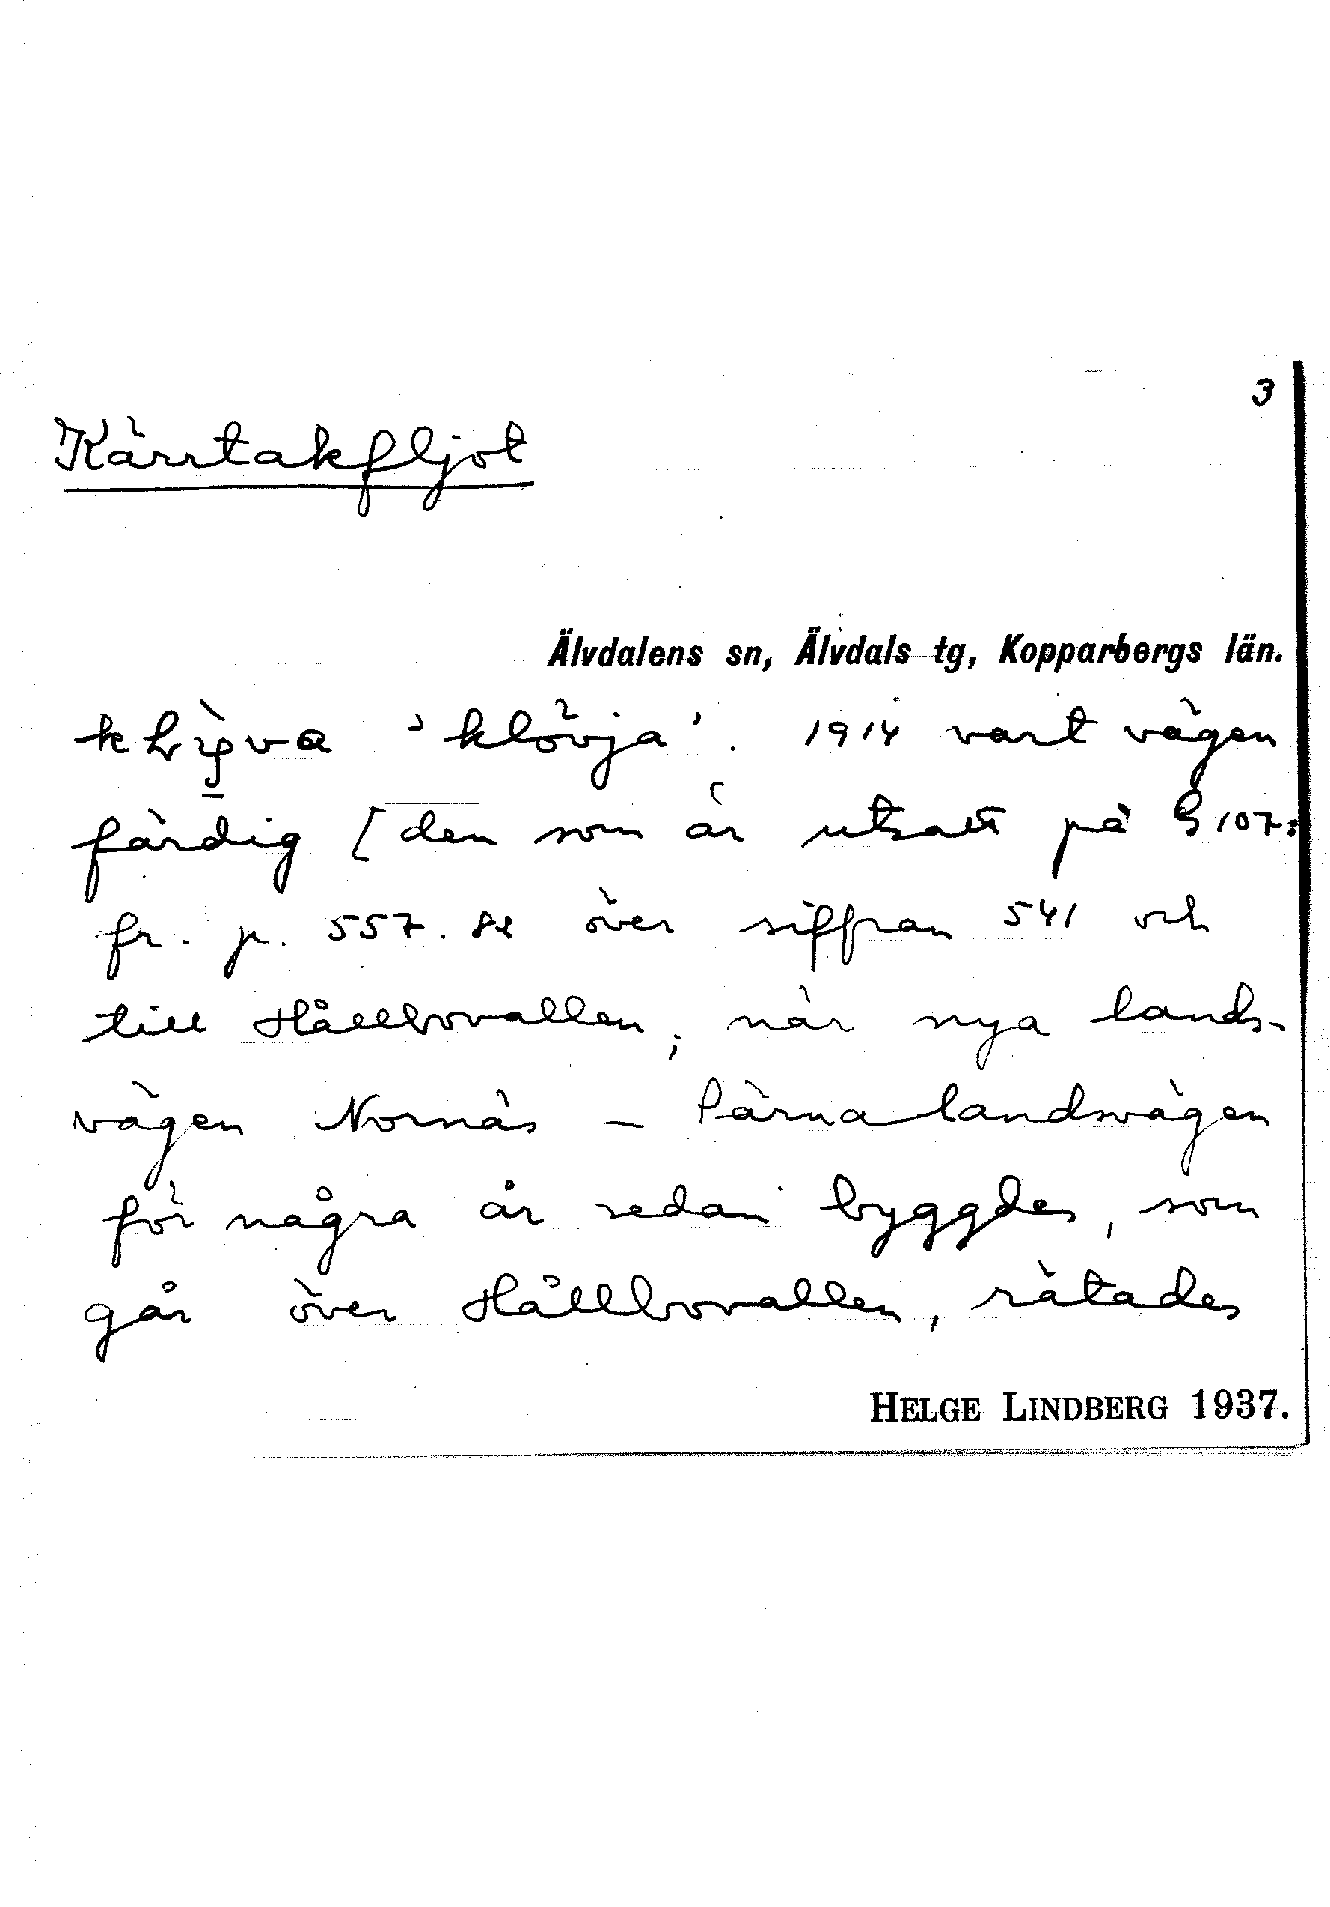 3
Kärrtakfljot
Älvdalens sn, Älvdals tg, Kopparbergs län.
'klövja'. 1914 vart vägen
färdig [den som är utsatt på G 107:
fr. p. 557. över siffran 541 och
till Hållbovallen; när nya lands-
vägen Nornäs – Särnalandsvägen
för några år sedan byggdes, som
går över Hållbovallen, rätades
HELGE LINDBERG 1937.